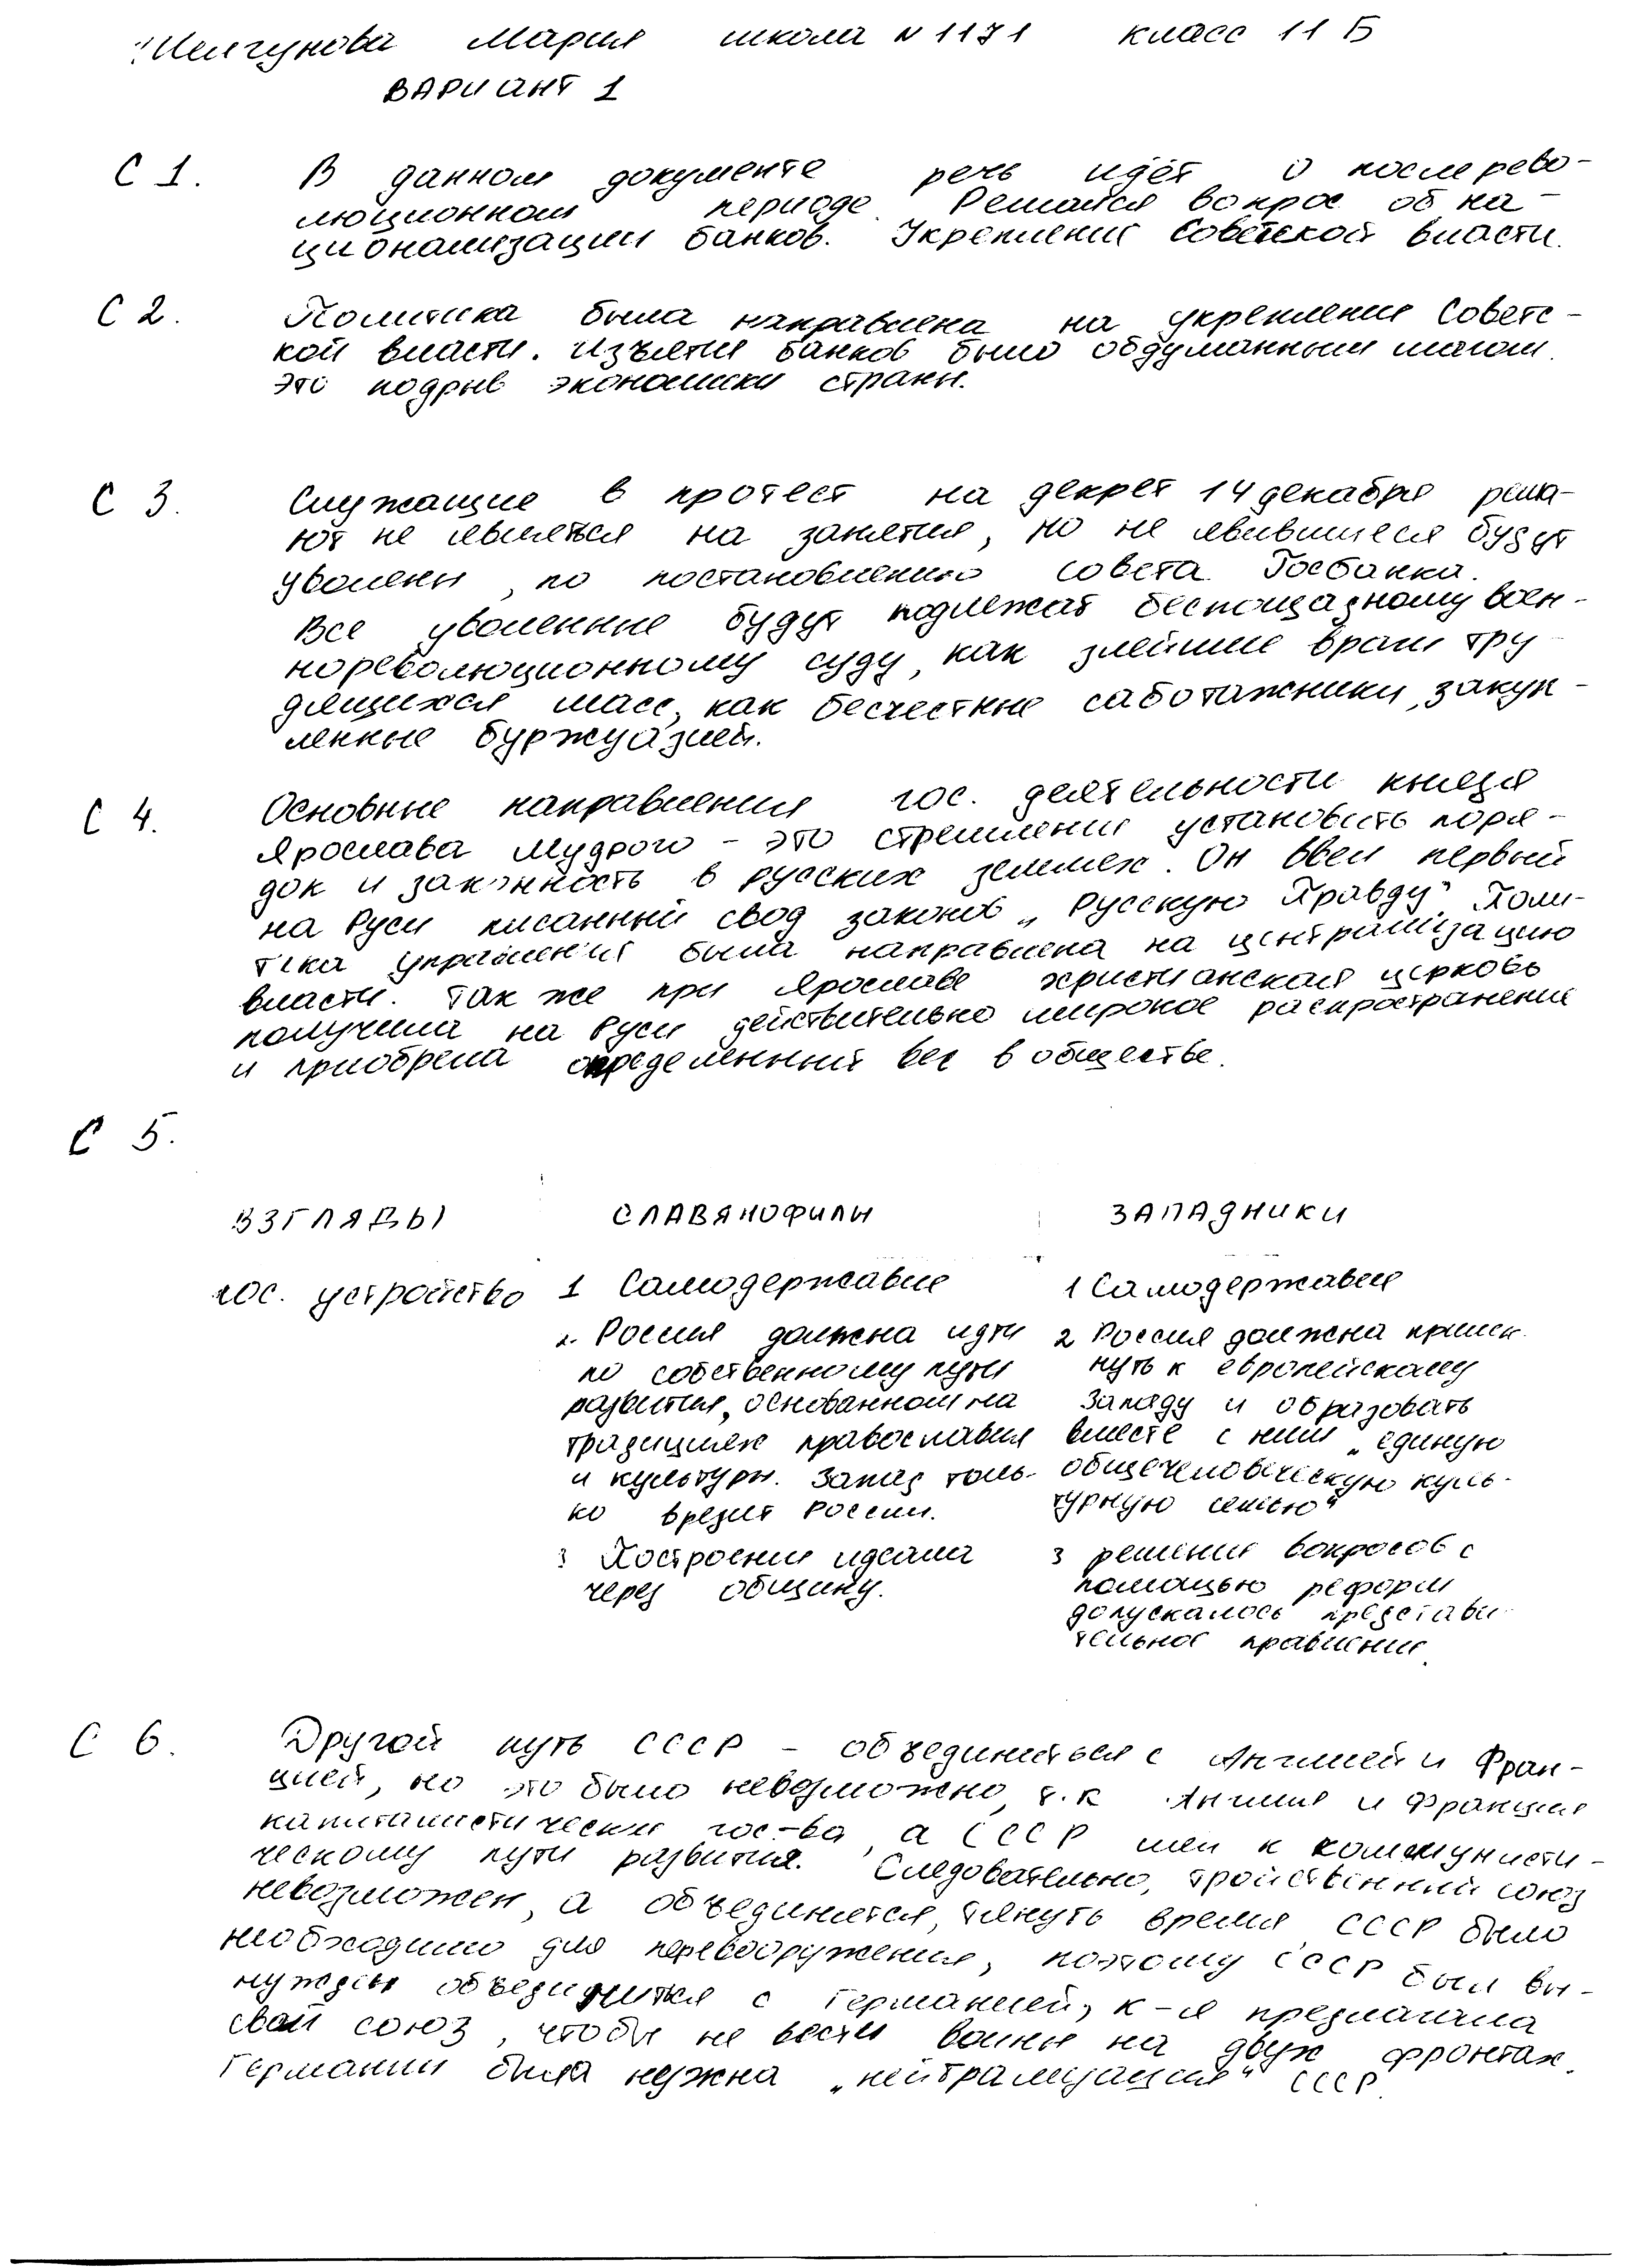 Шелгунова Мария школа N 1171 класс 11 Б
ВАРИАНТ 1
С 1. В данном документе речь идёт о послерево-
люционном периоде. Решался вопрос об на-
ционализации банков. Укрепление Советской власти.
С 2. Политика была направлена на укрепление Советс-
кой власти. Изъятие банков было обдуманным шагом.
это подрыв экономики страны.
С 3. Служащие в протест на декрет 14 декабря реша-
ют не являться на занятия, но не явившиеся будут
уволены, по постановлению совета Госбанка.
Все уволенные будут подлежат беспощадному воен-
нореволюционному суду, как злейшие враги тру
дящихся масс, как бесчестные саботажники, закуп-
ленные буржуазией.
С 4. Основные направления гос. деятельности князя
Ярослава Мудрого - это стремление установить поря-
док и законность в русских землях. Он ввел первый
на Руси писанный свод законов „Русскую Правду". Поли-
тика управления была направлена на централизацию
власти. Так же при Ярославе христианская церковь
получила на Руси действительно широкое распространение
и приобрела определенный вес в обществе.
С 5.
ВЗГЛЯДЫ СЛАВЯНОФИЛЫ ЗАПАДНИКИ
гос. устройство 1 Самодержавие 1 Самодержавие
2. Россия должна идти 2 Россия должна примк
по собственному пути нуть к европейскому
развития, основанном на Западу и образовать
традициях православия вместе с ним „единую
и культуры. Запад толь- общечеловеческую куль-
ко вредит России. турную семью"
3 Построение идеала 3 решение вопросов с
через общину. помощью реформ
допускалось представи-
тельное правление.
С 6. Другой путь СССР - объединиться с Англией и Фран-
цией, но это было невозможно, т.к Англия и Франция
капиталистические гос-ва, а СССР шел к коммунисти-
ческому пути развития. Следовательно, тройственный союз
невозможен, а объединятся, тянуть время, СССР было
необходимо для перевооружения, поэтому СССР был вы-
нужден объединится с Германией, к-я предлагала
свой союз, чтобы не вести войны на двух фронтах.
Германии была нужна „нейтрализация" СССР.